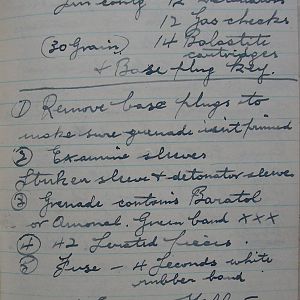 Tin contg 12 Detonators
12 Gas checks
(30 Grain) 14 Balastite
cartridges
& Base plug key.
① Remove base plugs to
make sure grenade isent primed
② Examine sleeves
Striker sleeve & detonator sleeve
③ Grenade contains Baratol
or Amonal. Green band XXX
④ 42 Serated pieces.
⑤ Fuse - 4 Seconds white
rubber band